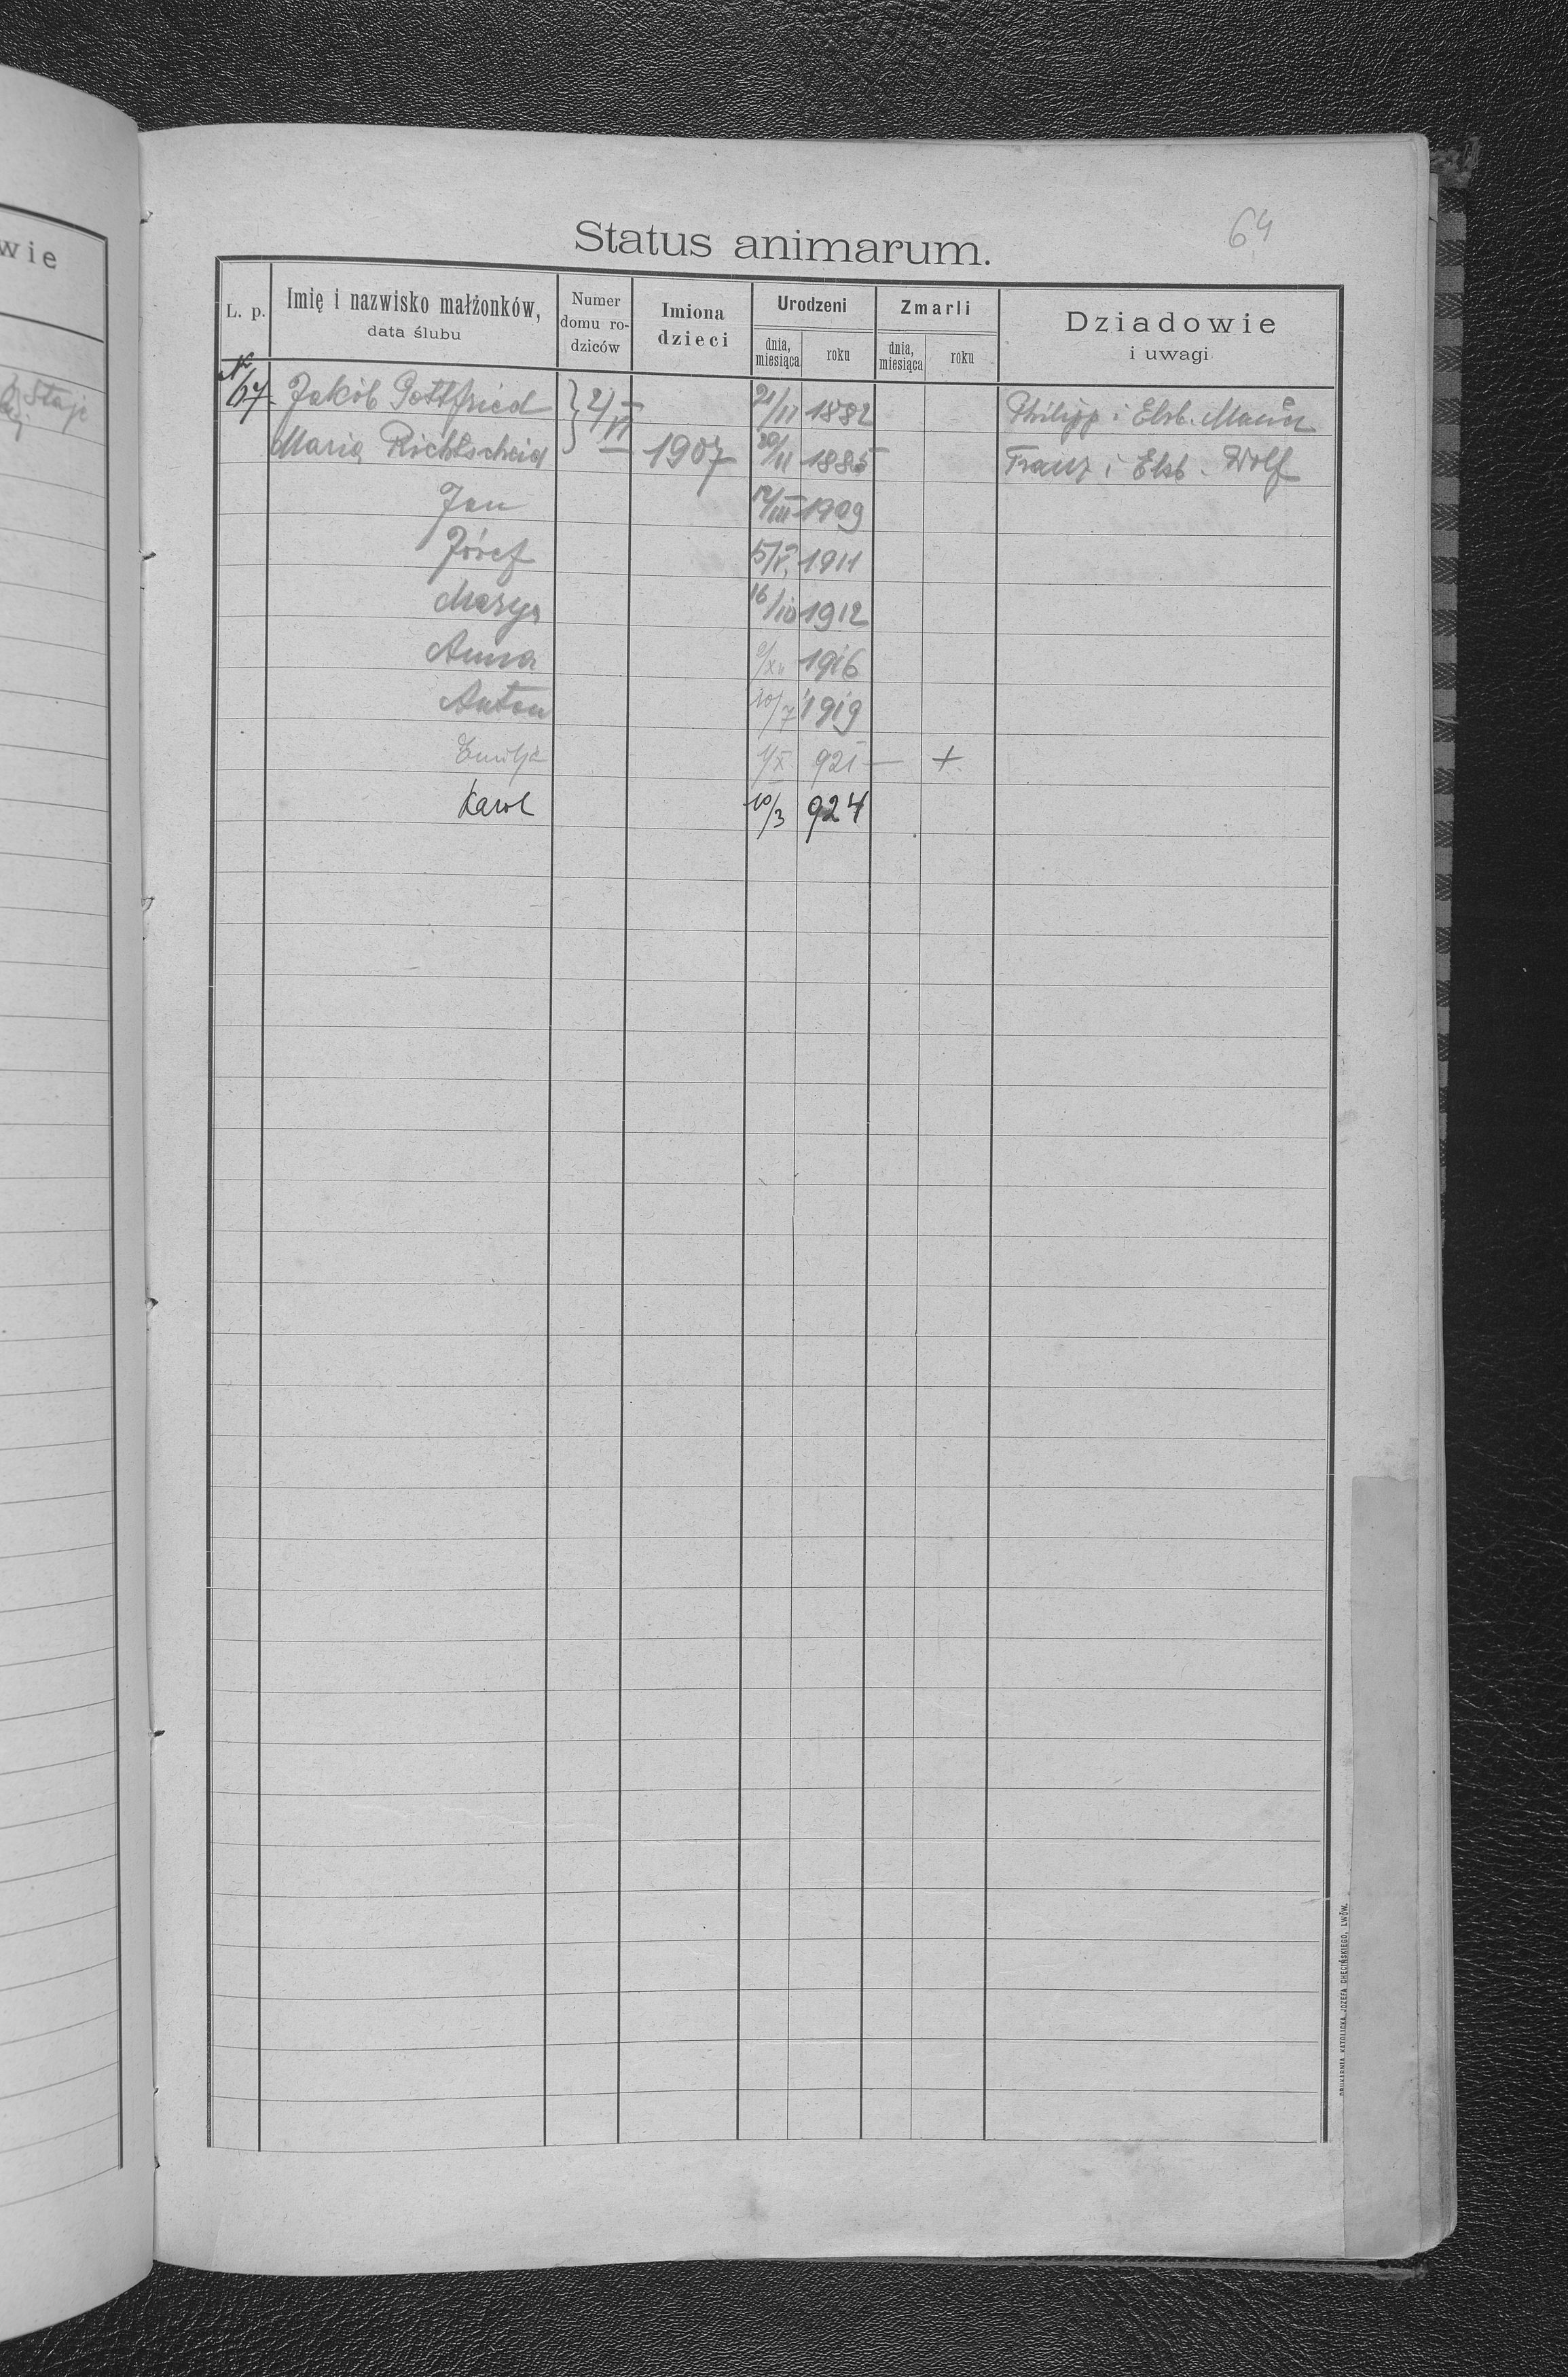 wie
Staje
64
Status animarum.
L. p. Imię i nazwisko małżonków, data ślubu Numer domu rodziców Imiona dzieci Urodzeni dnia, miesiąca roku Zmarli dnia, miesiąca roku Dziadowie i uwagi
N/67. Jakób Gottfried } 2/VI 21/II 1882 Philipp i Elsb.
Maria Richtscheid 1907 20/II 1885 Franz i Elsb. Wolf
Jan 12/III 1909
Józef 15/V. 1911
Marya 16/10 1912
Anna 1916
Anton 20/7 1919
Emilja 1/X 921 — +
Karol 10/3 924
DRUKARNIA KATOLICKA JÓZEFA CHĘCIŃSKIEGO, LWÓW.